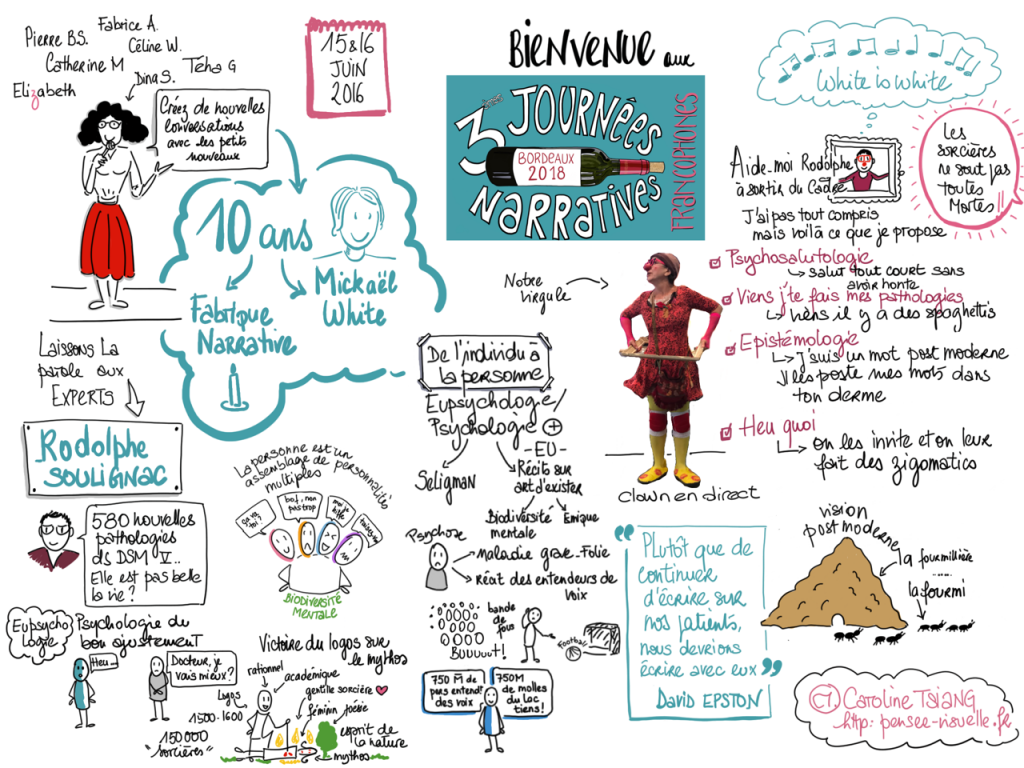 Pierre B.S.
Fabrice A.
Céline W.
Catherine M
Téha G
Elizabeth
Dina S.
Créez de nouvelles
conversations
avec les petits
nouveaux
15&16
JUIN
2016
BIENVENUE aux
3èmes JOURNÉES
BORDEAUX
2018
NARRATIVES
FRANCOPHONES
White is White
Les
sorcières
ne sont pas
toutes
Mortes!!
10 ans
Fabrique
Narrative
Mickaël
White
Aide-moi Rodolphe
à sortir du Cadre
J'ai pas tout compris
mais voilà ce que je propose
Psychosalutologie
salut tout court sans
avoir honte
Viens j'te fais mes pathologies
viens il y a des spaghettis
Epistémologie
J'suis un mot post moderne
Il les poste mes mots dans
ton derme
Heu quoi
on les invite et on leur
fait des zigomatics
Notre
Virgule
clown en direct
Laissons La
parole aux
EXPERTS
Rodolphe
SOULIGNAC
580 nouvelles
pathologies
ds DSM V...
Elle est pas belle
la vie?
Eupsycho
logie
Psychologie du
bon ajustement
Heu...
Docteur, je
vais mieux?
La personne est un
assemblage de personnalités
multiples
ça va
toi?
bof, non
pas trop
BIODIVERSITÉ
MENTALE
Victoire du logos sur
le mythos
rationnel
académique
gentille sorcière
Logos
féminin
poésie
1500-1600
150000
"sorcières"
esprit de
la nature
mythos
De l'individu à
la personne
Eupsychologie/
Psychologie +
-EU-
Séligman
Récits sur
art d'exister
Biodiversité
mentale
Emique
Psychose
maladie grave-Folie
récit des entendeurs de
voix
bande
de fous
Buuuuut!
Football
750 M de
pers entend!
des voix
750M
de malles
du loc
tiens!
"Plutôt que de
continuer
d'écrire sur
nos patients,
nous devrions
écrire avec eux"
David EPSTON
vision
post moderne
la fourmilière
....
la fourmi
CT Caroline TSIANG
http: pensee-visuelle.fr